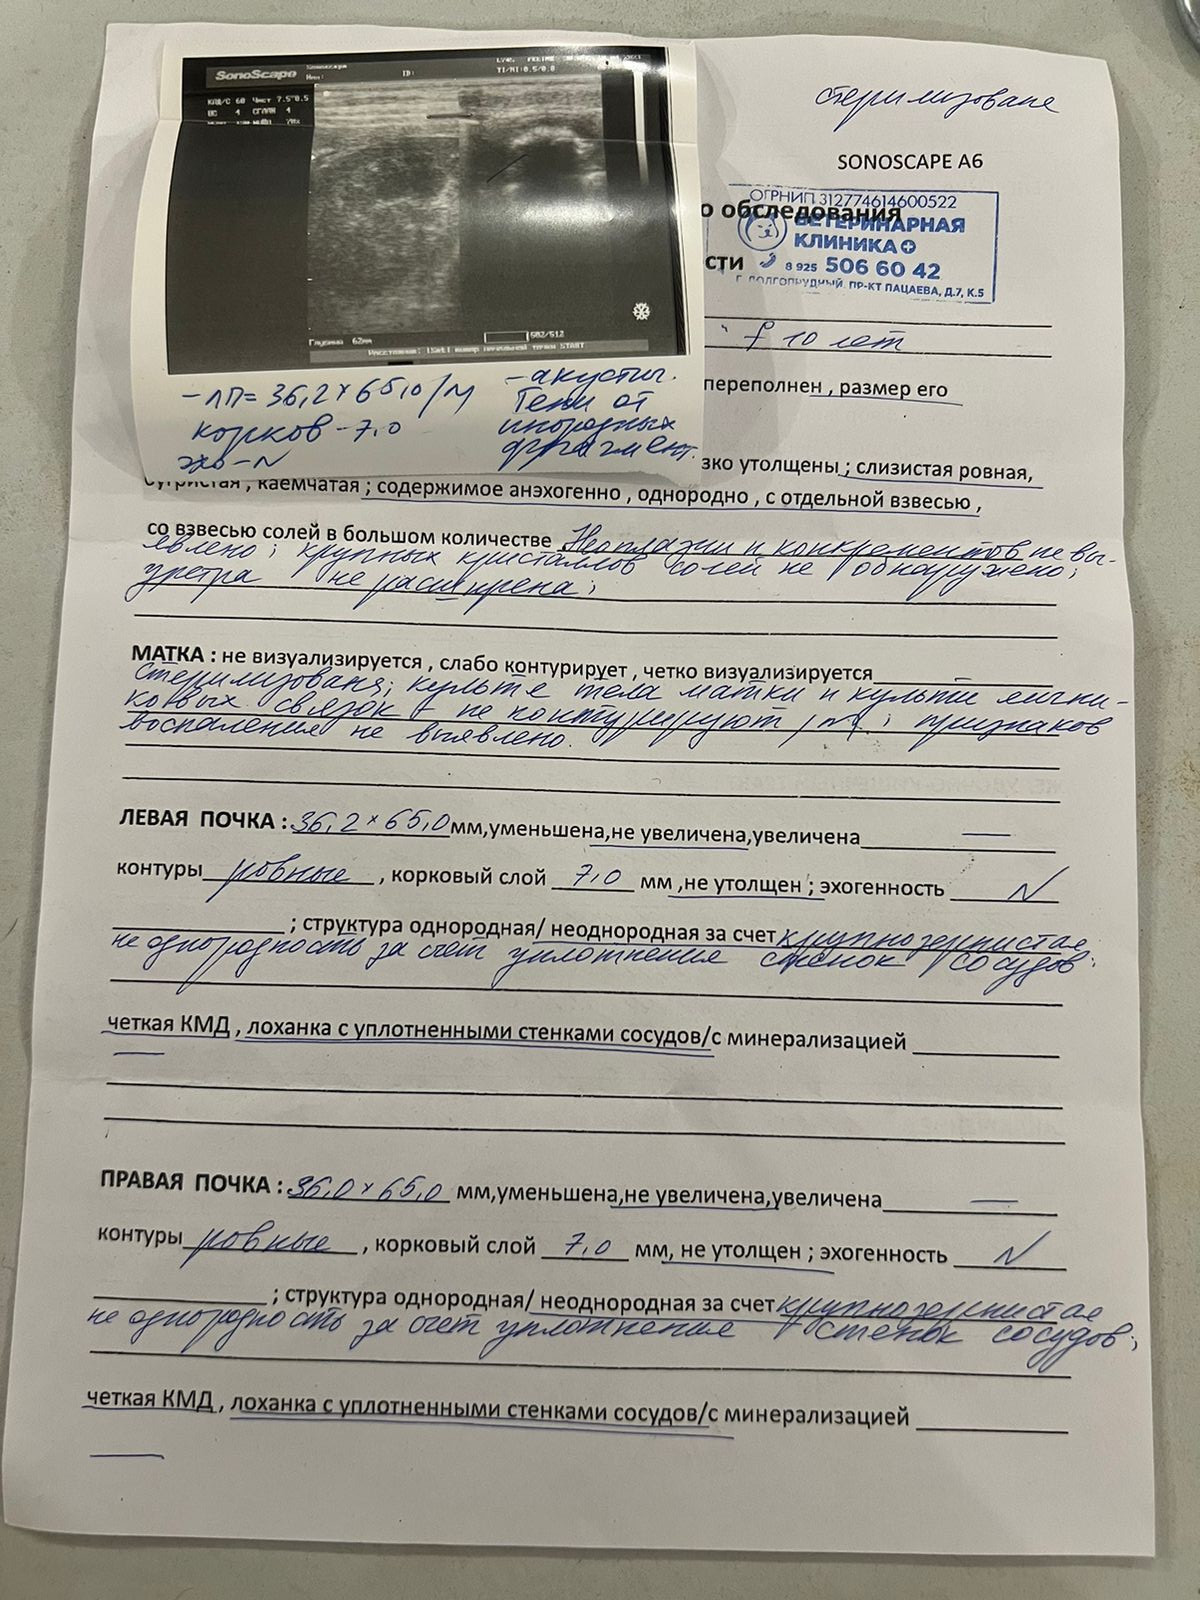 стерилизована
SONOSCAPE A6
SonoScape
Sonoscape
Имя:
ID:
TI/MI:0.5/0.8
о обследования
ОГРНИП 312774614600522
ВЕТЕРИНАРНАЯ
КЛИНИКА
сти
8 925 506 60 42
Г. ДОЛГОПРУДНЫЙ, ПР-КТ ПАЦАЕВА, Д.7, К.5
Глубина 62мм
502/512
f 10 лет
переполнен , размер его
- ЛП= 36,2 x 65,0 /N
корков - 7,0
эхо - N
- акустич.
тени от
инородных
фрагмент.
зко утолщены ; слизистая ровная,
бугристая , каемчатая ; содержимое анэхогенно , однородно , с отдельной взвесью ,
со взвесью солей в большом количестве Неоплазии и конкрементов не вы-
явлено; крупных кристаллов солей не обнаружено;
уретра не расширена;
МАТКА : не визуализируется , слабо контурирует , четко визуализируется
Стерилизована; культе тела матки и культи яични-
ковых связок - не контурируют /N ; признаков
воспаления не выявлено.
ЛЕВАЯ ПОЧКА : 36,2 x 65,0 мм,уменьшена,не увеличена,увеличена —
контуры ровные , корковый слой 7,0 мм ,не утолщен ; эхогенность N
; структура однородная/ неоднородная за счет крупнозернистая
неоднородность за счет уплотнения стенок сосудов;
четкая КМД , лоханка с уплотненными стенками сосудов/с минерализацией
—
ПРАВАЯ ПОЧКА : 36,0 x 65,0 мм,уменьшена,не увеличена,увеличена —
контуры ровные , корковый слой 7,0 мм, не утолщен ; эхогенность N
; структура однородная/ неоднородная за счет крупнозернистая
неоднородность за счет уплотнения стенок сосудов;
четкая КМД , лоханка с уплотненными стенками сосудов/с минерализацией
—